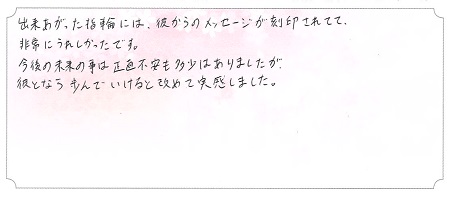 出来あがった指輪には、彼からのメッセージが刻印されてて、
非常にうれしかったです。
今後の未来の事は正直不安も多少はありましたが、
彼となら歩んでいけると改めて実感しました。